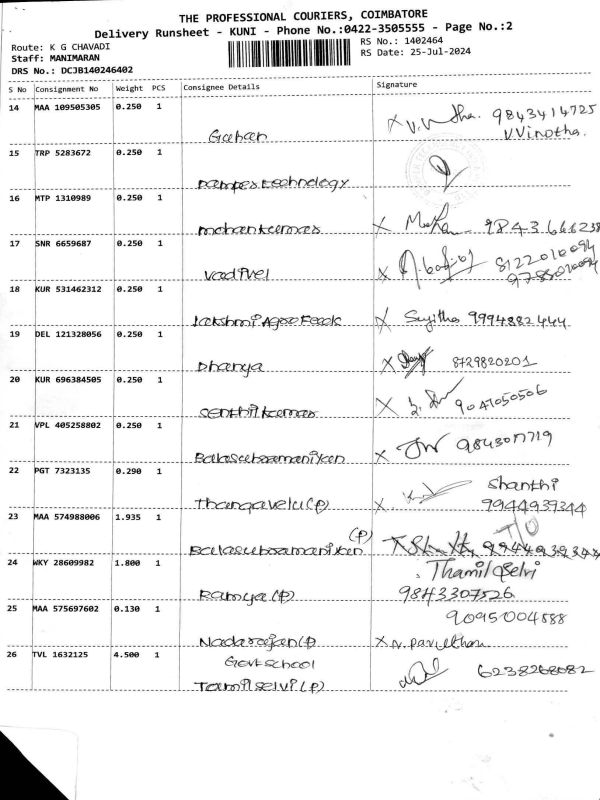 THE PROFESSIONAL COURIERS, COIMBATORE
Delivery Runsheet - KUNI - Phone No.:0422-3505555 - Page No.:2
Route: K G CHAVADI
Staff: MANIMARAN
DRS No.: DCJB140246402
RS No.: 1402464
RS Date: 25-Jul-2024
S No Consignment No Weight PCS Consignee Details Signature
14 MAA 109505305 0.250 1 9843414725
V.Vinotha.
Gahan
15 TRP 5283672 0.250 1
16 MTP 1310989 0.250 1
mohankumar 9843666238
17 SNR 6659687 0.250 1 8122010094
vadivel 9785010094
18 KUR 531462312 0.250 1
Lakshmi Agro Feeds Sujitha 9994882444
19 DEL 121328056 0.250 1
Dhanya 8729820201
20 KUR 696384505 0.250 1
Senthilkumar 9047050506
21 VPL 405258802 0.250 1
Balasubramaniyan
22 PGT 7323135 0.290 1 Shanthi
Thangavelu (P) 9944939344
23 MAA 574988006 1.935 1
(P)
Balasubramaniyan 9944939344
24 WKY 28609982 1.800 1 Thamil Selvi
Ramya (P) 9843307526
25 MAA 575697602 0.130 1 9095004588
Nadarajan (P)
26 TVL 1632125 4.500 1 Govt School 6238268082
Tamilselvi (P)